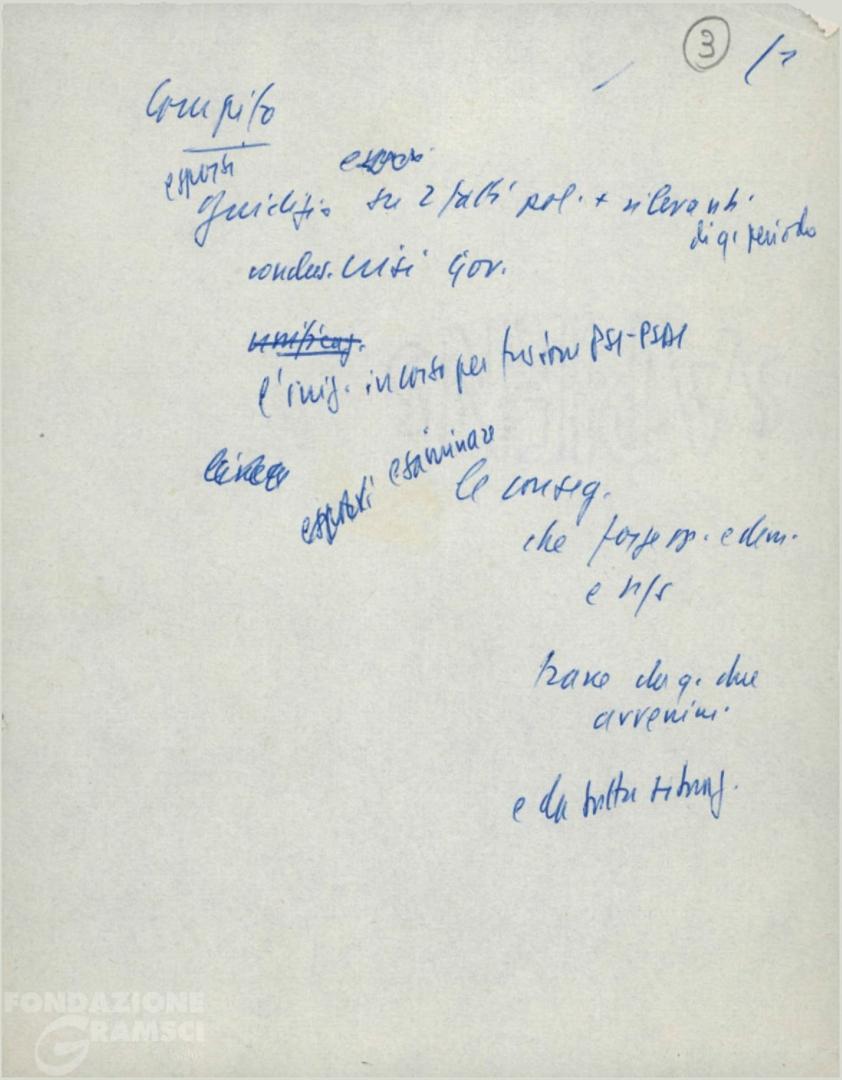 3 /1
Compito
esporsi
giudizio su 2 fatti pol. + rilevanti
di q. periodo
conclus. crisi Gov.
unificaz.
l'iniz. in corso per fusione PSI-PSDI
linea
esaminare
le conseg.
che forze op. e dem.
e ns
trarre da q. due
avvenim.
e da tutta situaz.
FONDAZIONE
GRAMSCI